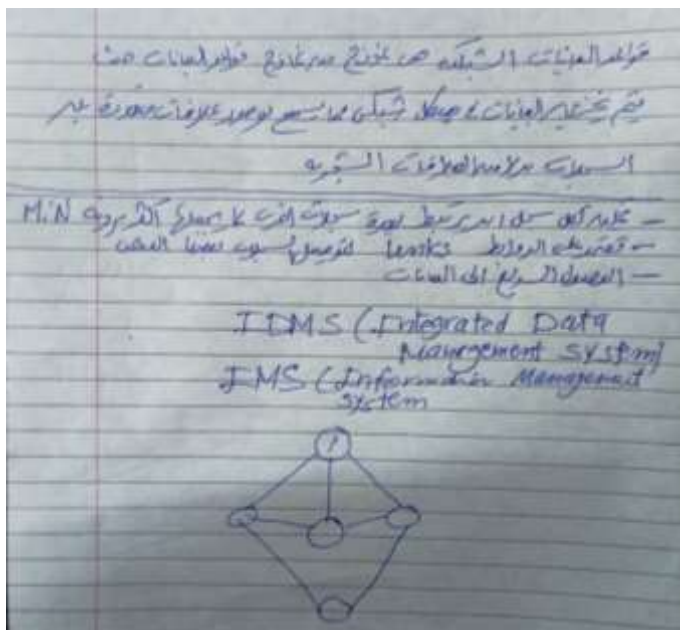 قواعد البيانات الشبكية هي نموذج من نماذج قواعد البيانات حيث
يتم تخزين البيانات في هيكل شبكي مما يسمح بوجود علاقات متعددة بين
السجلات بدلا من العلاقات الشجرية
– يمكن لكل سجل ان يرتبط بعدة سجلات اخرى مما يجعلها أكثر مرونة M:N
– تعتمد على الروابط Lenks لتوصيل السجلات ببعضها البعض
– الوصول السريع الى البيانات
IDMS (Integrated Data
Management system)
IMS (Information Management
system
1